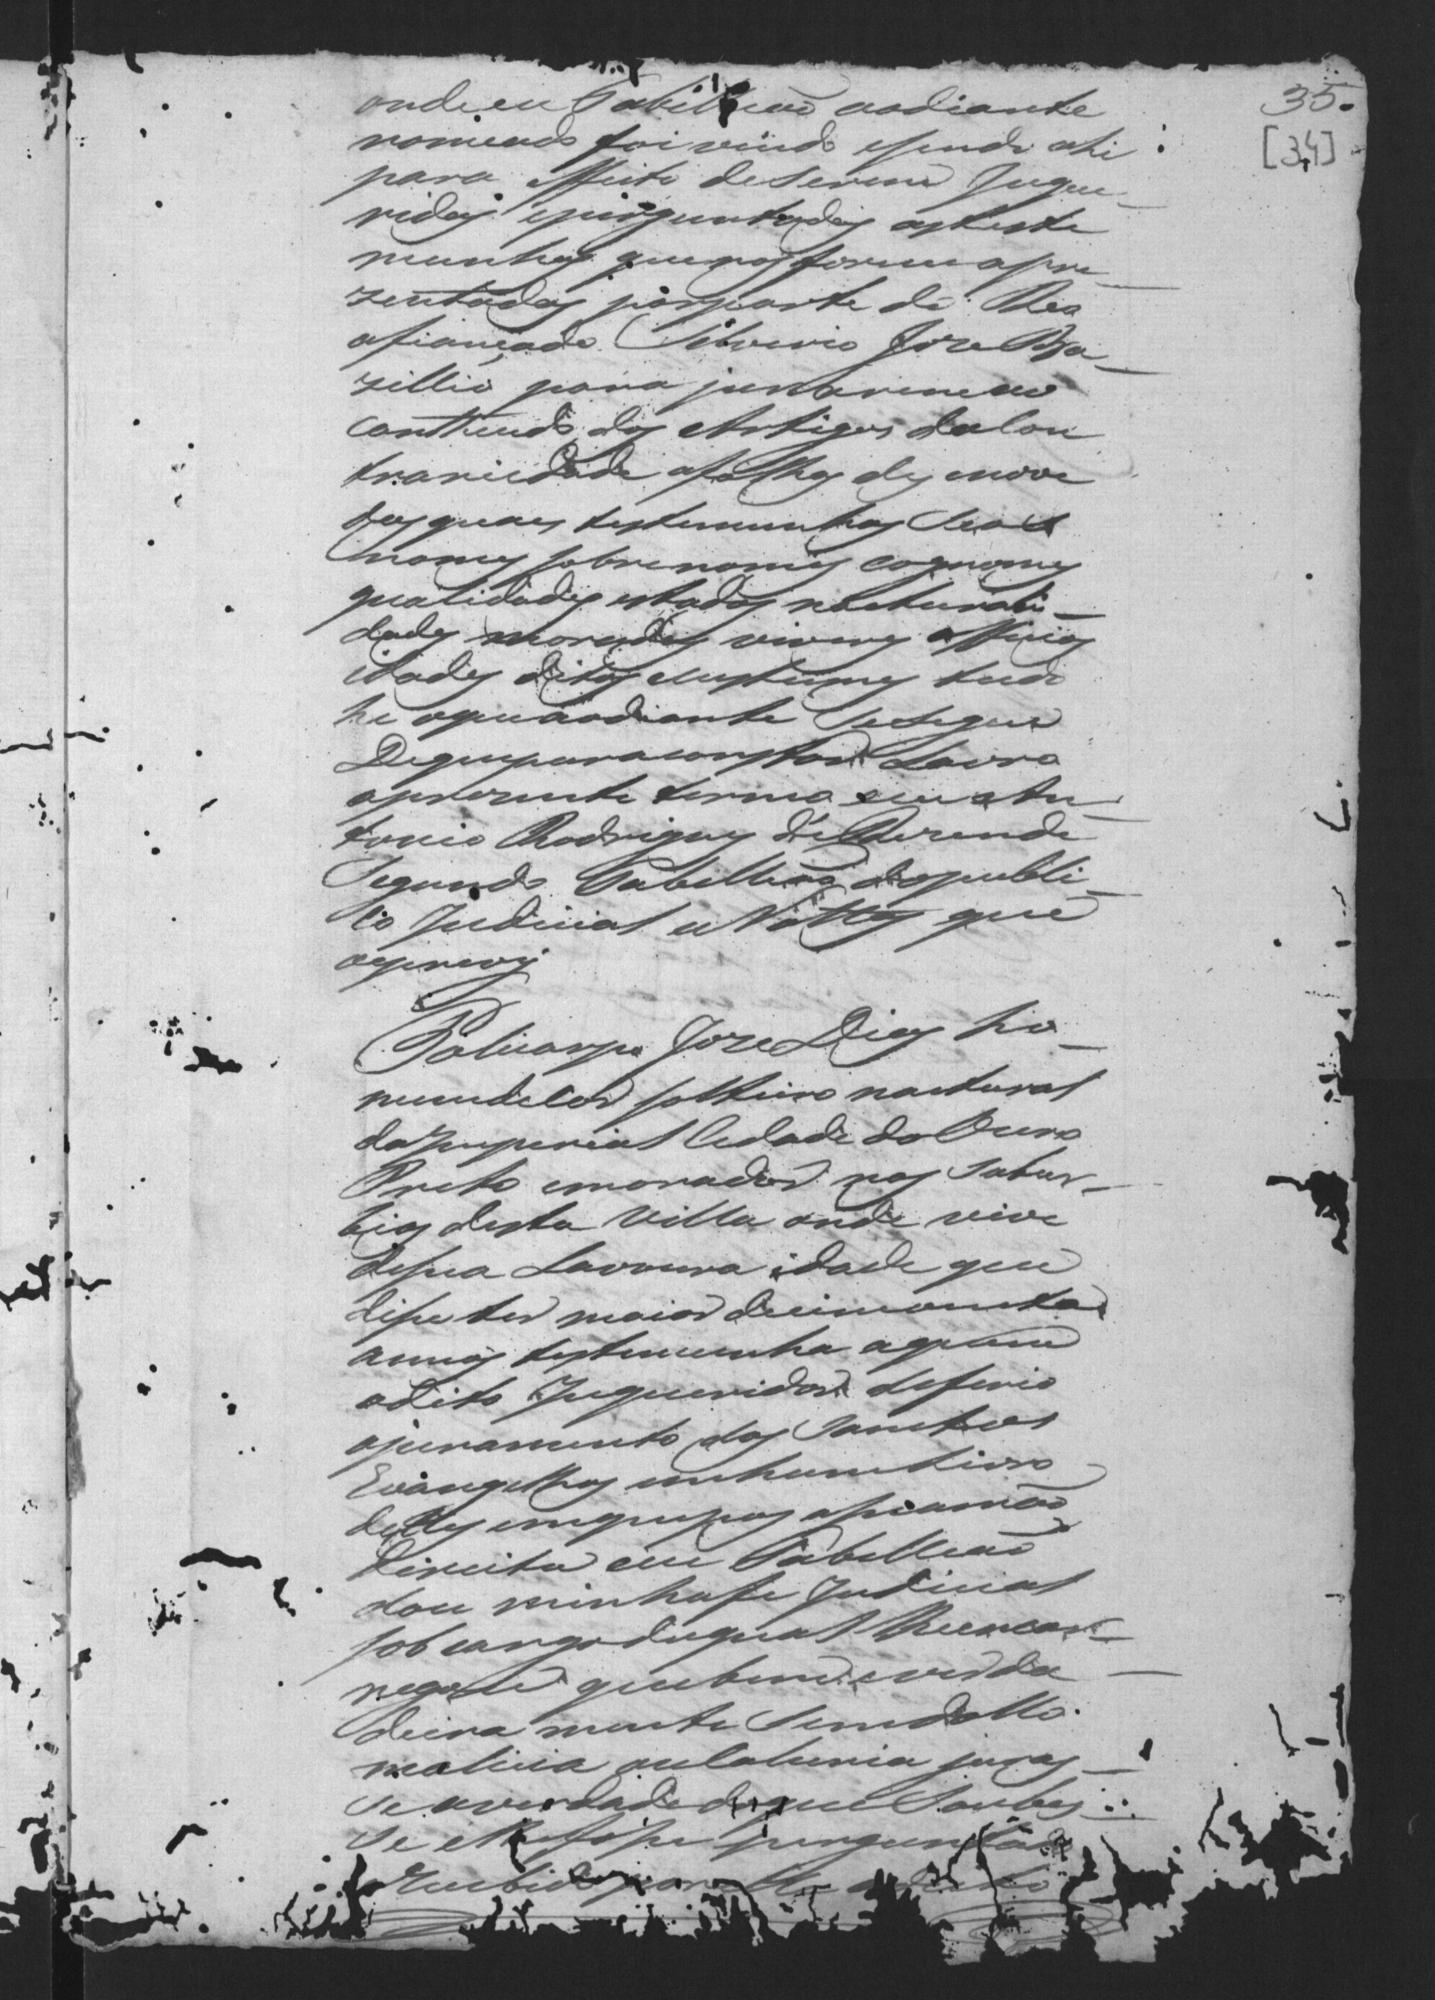 35.
[34]
onde eu Tabelliaõ aodiante
nomeado foi vindo e sendo ahi
para effeito deSerem Inque
ridas eperguntadas as teste
munhas quenos foraõ apre
zentadas porparte do Reo
afiançado Silverio Jozé Ba
zillio para juraremao
contheudo dos Artigos daCon
trariedade afolhas des nove
das quaes testemunhas Seos
nomes sobrenomes cognomes
qualidades estados naturali
dades moradas viveres officios
idades ditos ecustumes tudo
he oqueaodiante SeSegue
Dequeparaconstar Lavro
oprezente termo eu An
tonio Rodrigues de Rezende
Segundo Tabelliaõ dopubli
co Judicial eNottas que
oescrevy
Policarpo Joze Dias ho
memdeCor solteiro natural
daImperial Cidade do Ouro
Preto emorador nos Subur
bios desta Villa onde vive
desua Lavoura idade que
disse ter maior decincoenta
annos testemunha aquem
odito Inqueridor deferio
ojuramento dos Santos
Evangelhos emhum Livro
delles emquepos asuamaõ
direita eeu Tabelliaõ
dou minhafe Judicial
sob cargo doqual lheencar
regou quebem everda
deira mente Semdollo
malicia ouCalunia juras
se averdade doque Soubes
se elhefosse perguntado
erecebido por elle odito